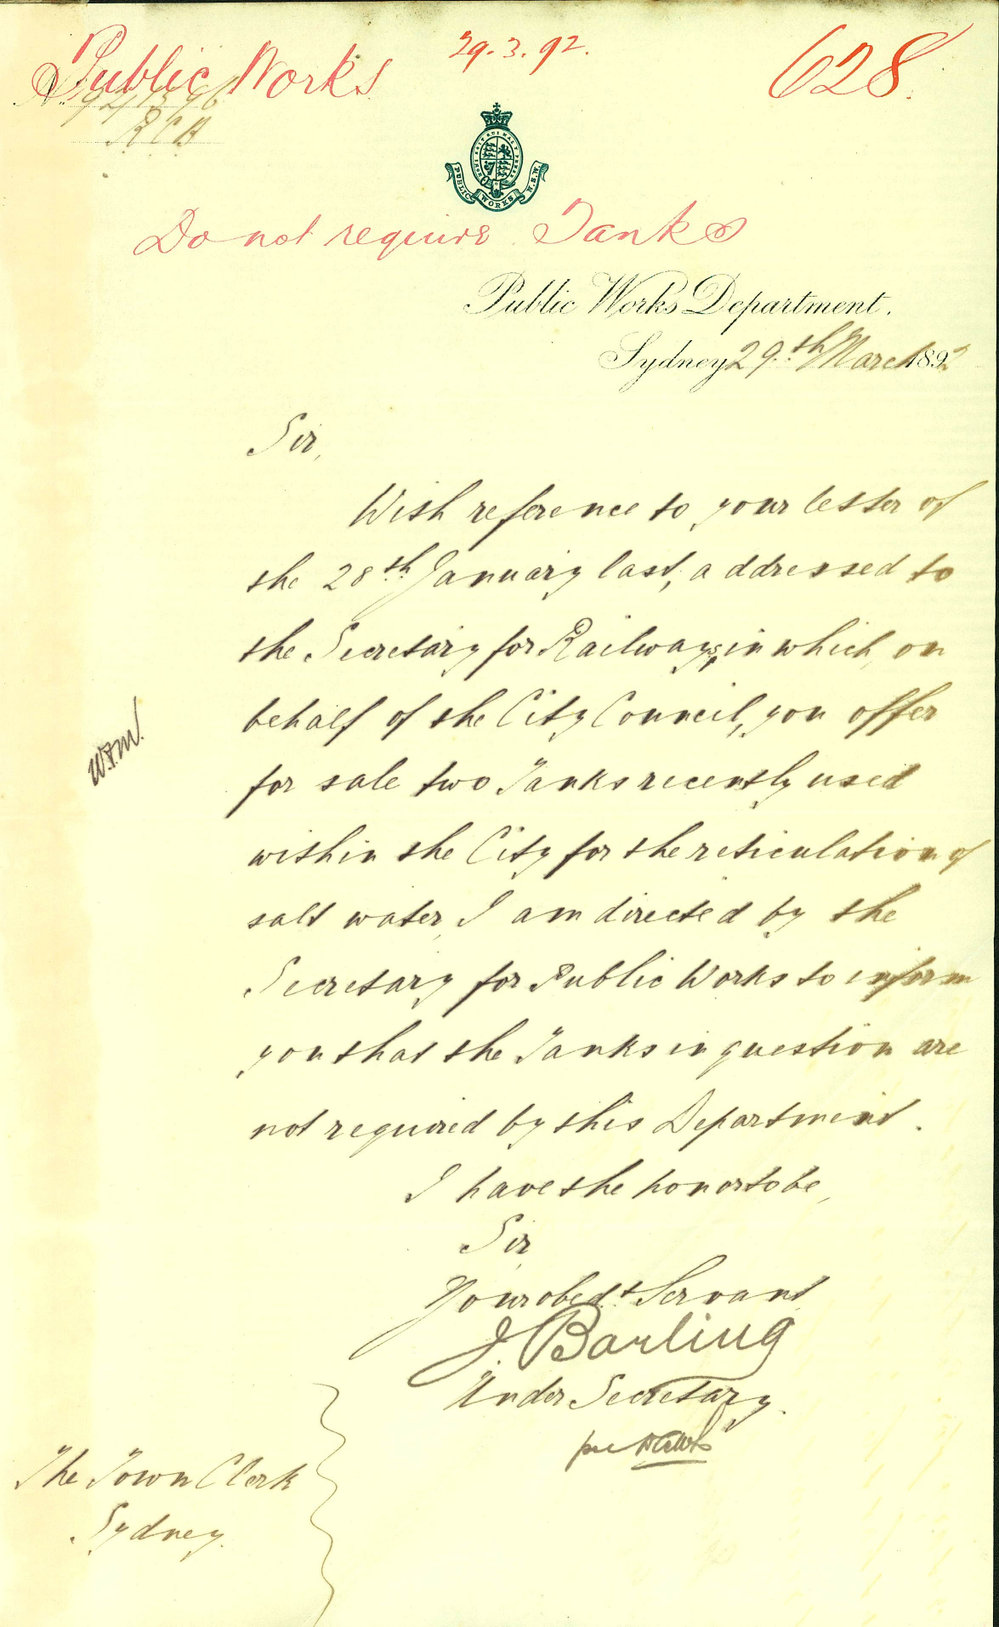 Public Works
29.3.92.
628.
92/1396
RCB
PUBLIC WORKS N.S.W.
Do not require Tanks
Public Works Department.
Sydney 29th March 1892
Sir,
With reference to your letter of
the 28th January last, addressed to
the Secretary for Railways, in which, on
behalf of the City Council, you offer
for sale two Tanks recently used
within the City for the reticulation of
salt water, I am directed by the
Secretary for Public Works to inform
you that the Tanks in question are
not required by this Department.
I have the honor to be,
Sir
Your obedt Servant
J. Barling
Under Secretary.
per
The Town Clerk
Sydney.